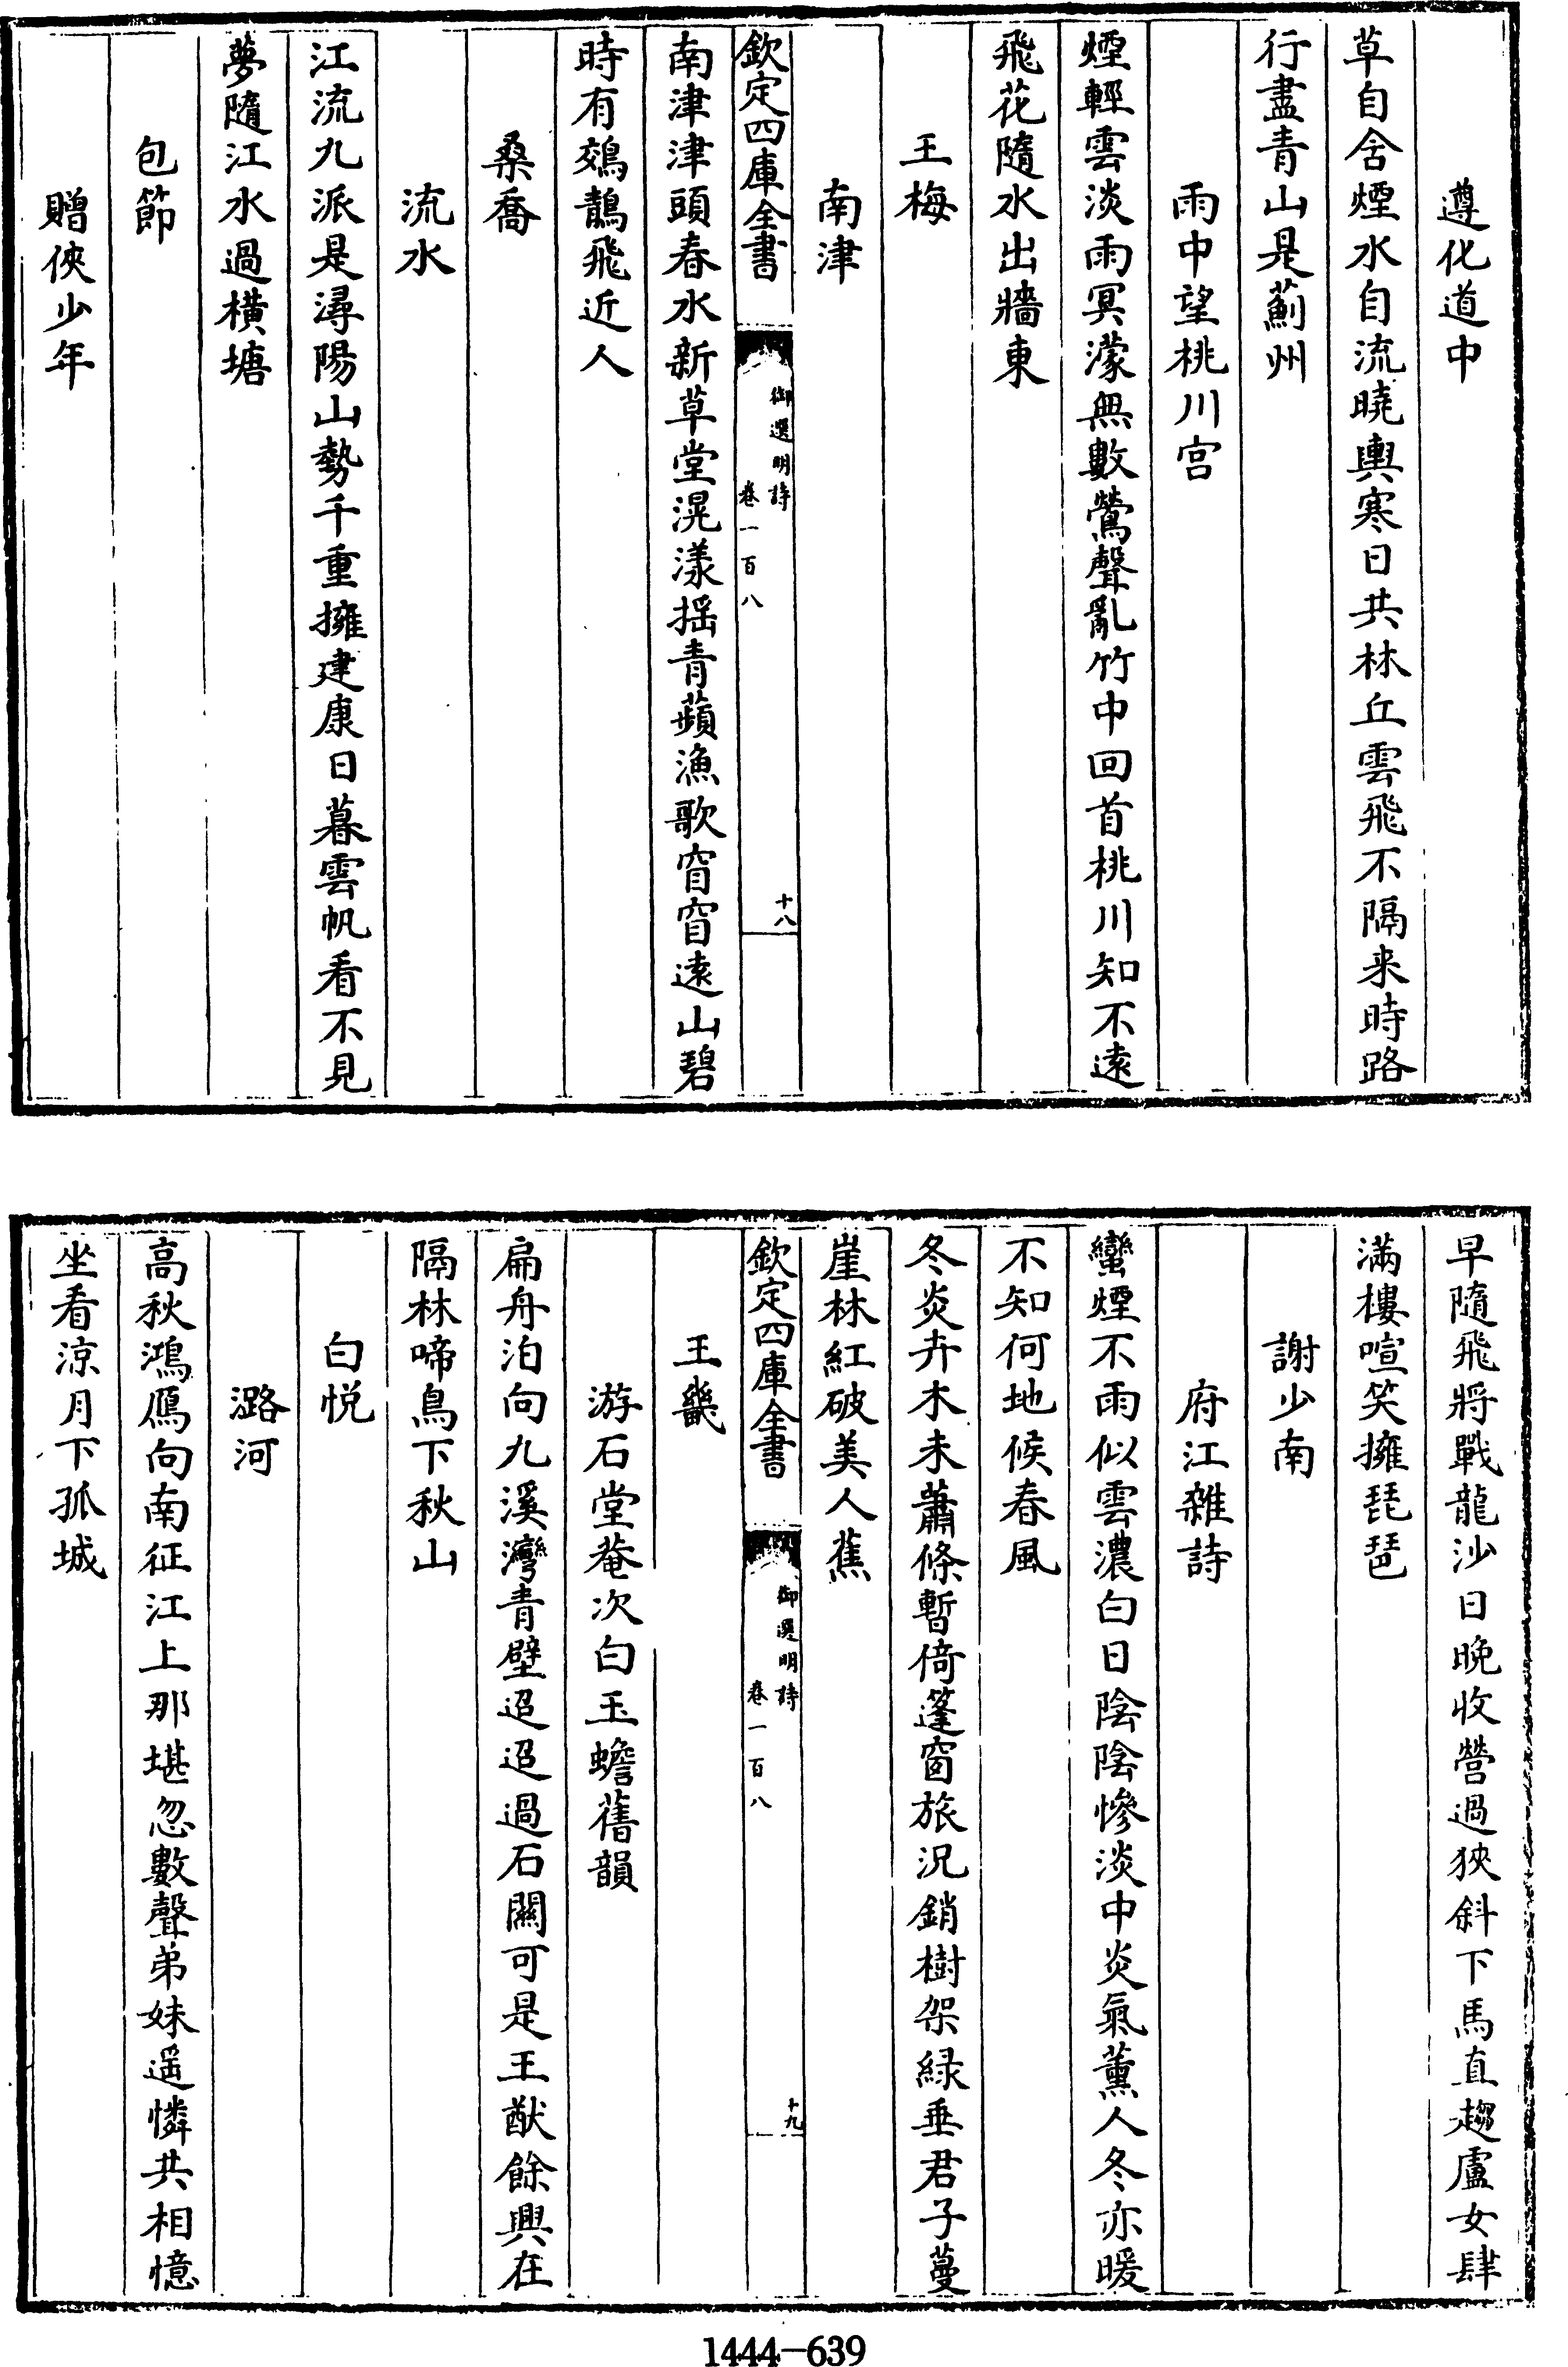 遵化道中
草自含煙水自流曉輿寒日共林丘雲飛不隔来時路
行盡青山是薊州
雨中望桃川宫
煙輕雲淡雨冥濛無數鶯聲亂竹中回首桃川知不逺
飛花隨水出牆東
王梅
南津
欽定四庫全書
御選明詩
卷一百八
十八
南津津頭春水新草堂滉漾揺青蘋漁歌窅窅逺山碧
時有鵁鶄飛近人
桑喬
流水
江流九派是潯陽山勢千重擁建康日暮雲帆看不見
夢隨江水過橫塘
包節
贈俠少年
早隨飛將戰龍沙日晚收營過狹斜下馬直趨盧女肆
滿樓喧笑擁琵琶
謝少南
府江雜詩
蠻煙不雨似雲濃白日陰陰慘淡中炎氣薰人冬亦暖
不知何地候春風
冬炎卉木未蕭條暫倚篷窗旅況銷樹架緑垂君子蔓
崖林紅破美人蕉
欽定四庫全書
御選明詩
卷一百八
十九
王畿
游石堂菴次白玉蟾舊韻
扁舟泊向九溪灣青壁迢迢過石闗可是王猷餘興在
隔林啼鳥下秋山
白悅
潞河
高秋鴻鴈向南征江上那堪忽數聲弟妹遥憐共相憶
坐看涼月下孤城
1444-639